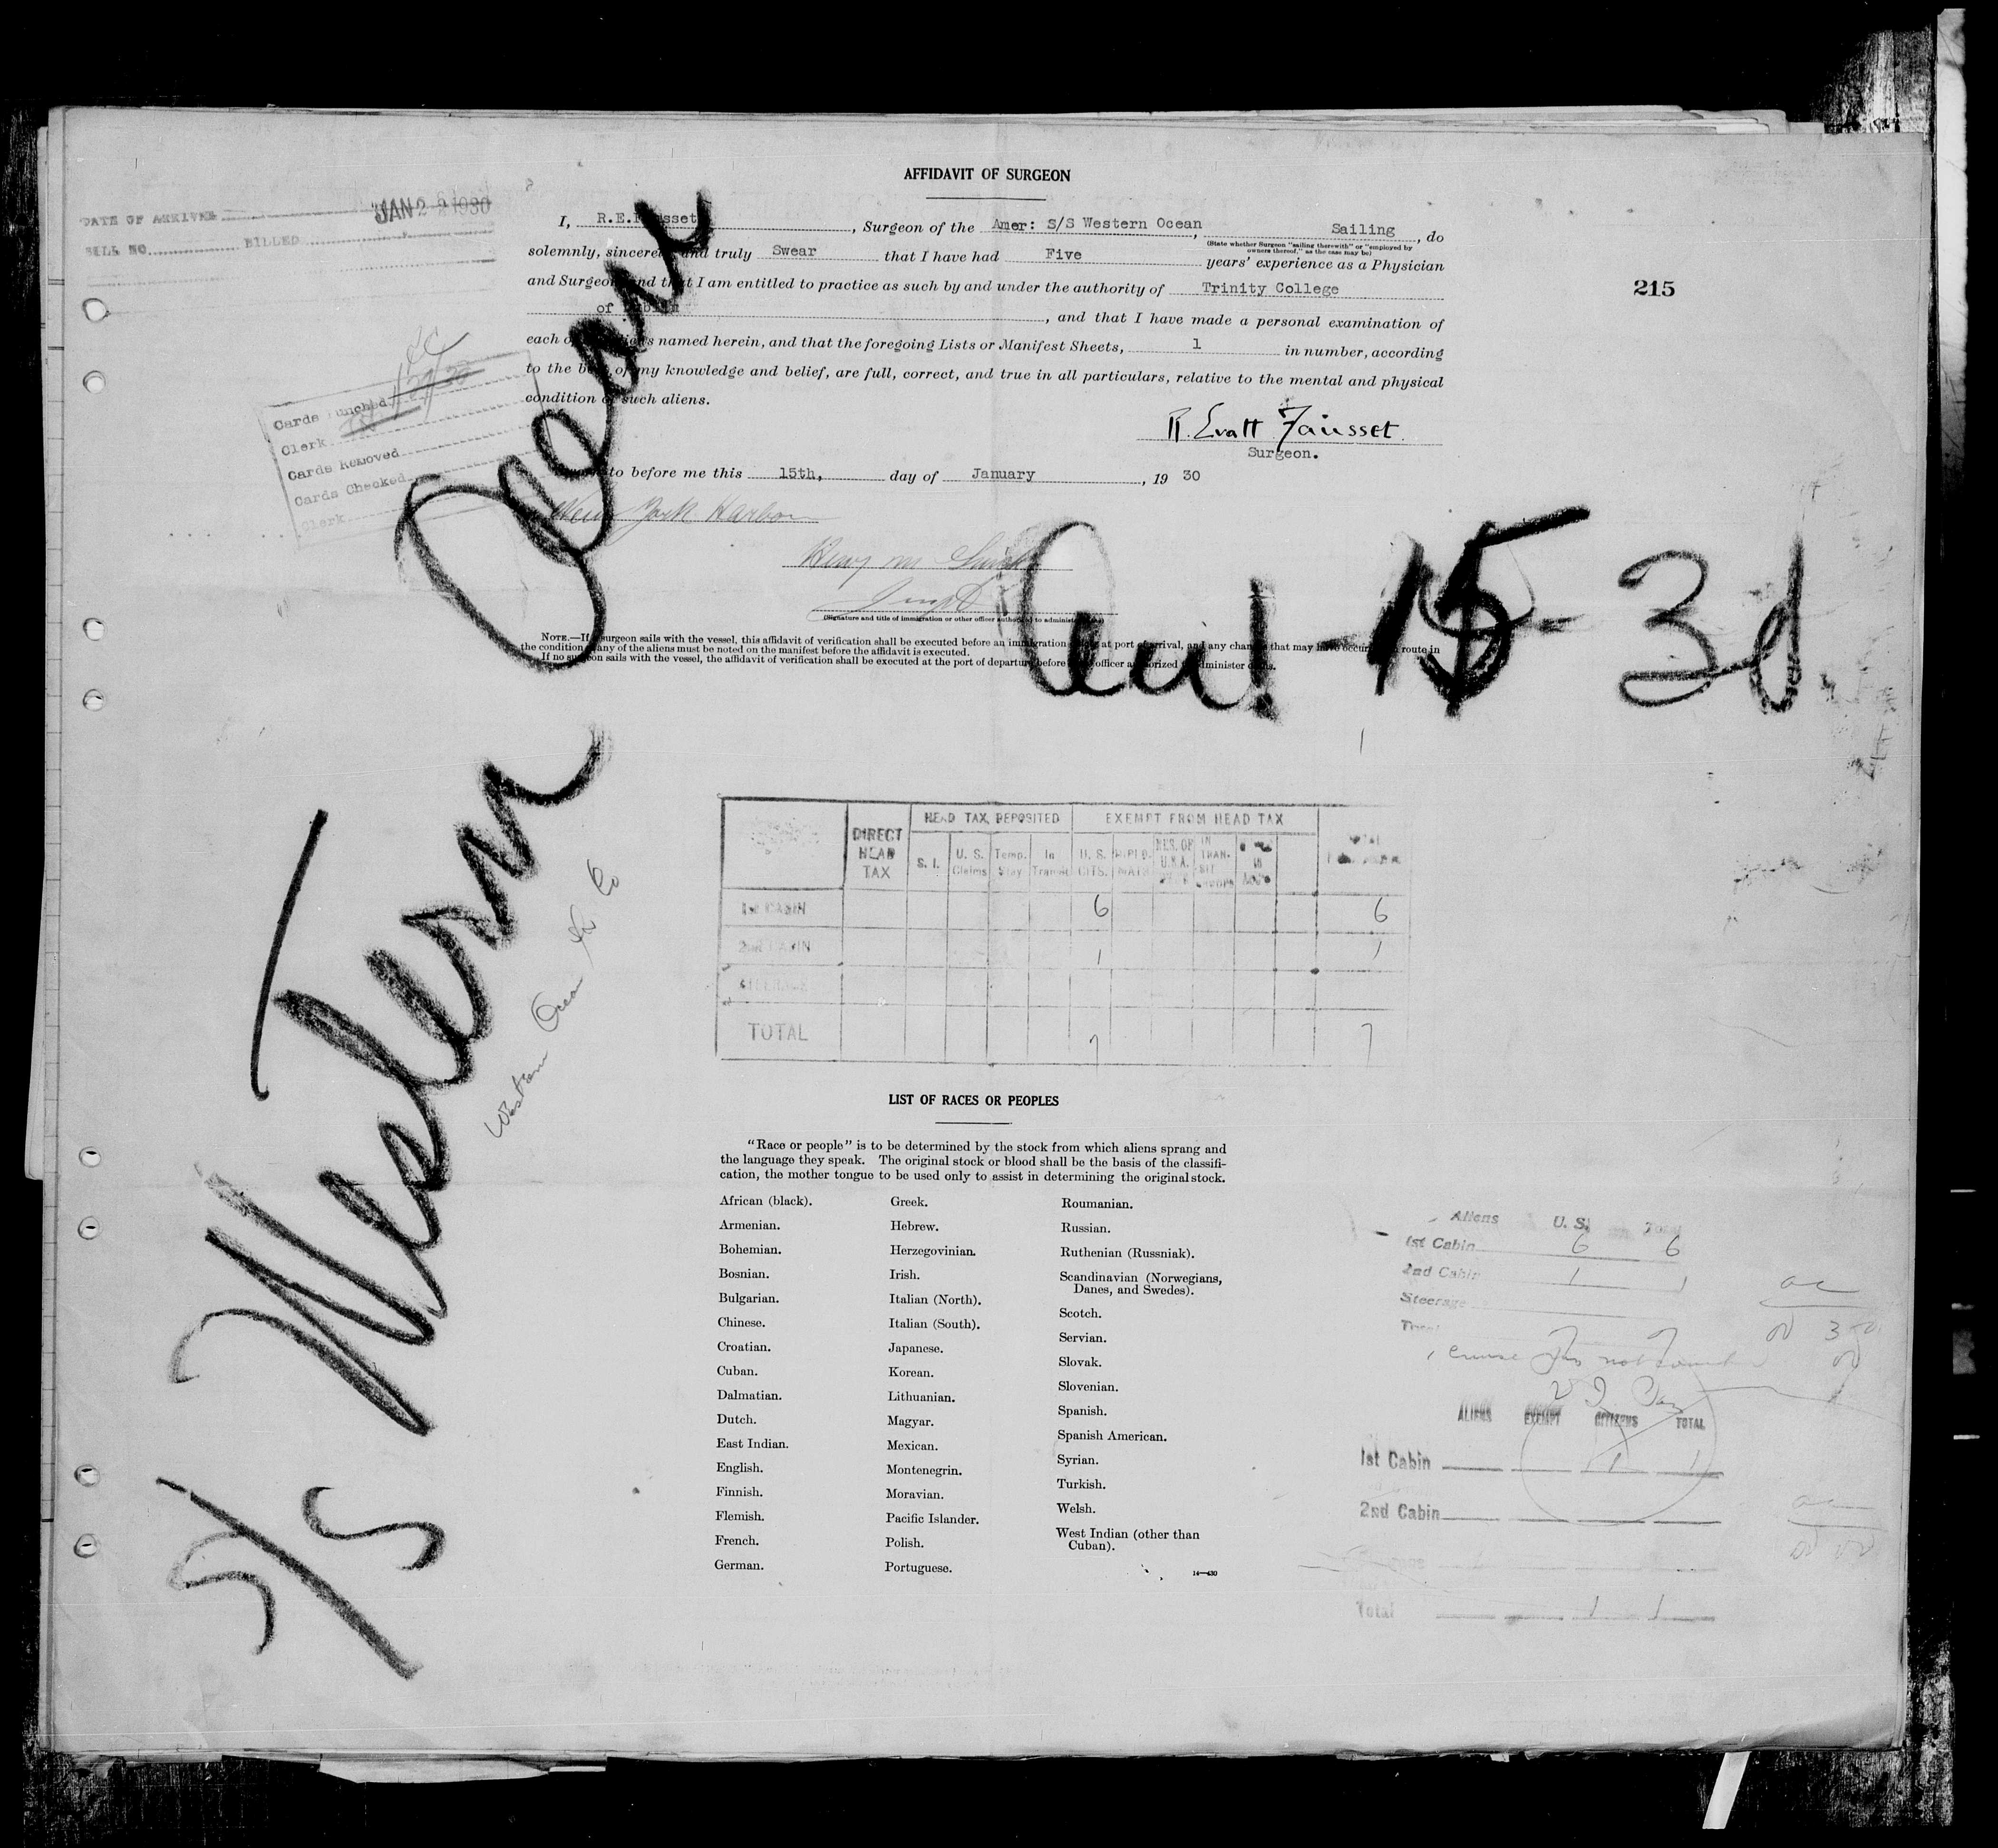 AFFIDAVIT OF SURGEON
DATE OF ARRIVAL JAN 2 2 1930
BILL NO. BILLED
I, R.E. , Surgeon of the Amer: S/S Western Ocean, Sailing, do
(State whether Surgeon "sailing therewith" or "employed by
owners thereof," as the case may be)
solemnly, sincerely and truly Swear that I have had Five years' experience as a Physician
and Surgeon and that I am entitled to practice as such by and under the authority of Trinity College
of Dublin, and that I have made a personal examination of
each of the aliens named herein, and that the foregoing Lists or Manifest Sheets, 1 in number, according
to the best of my knowledge and belief, are full, correct, and true in all particulars, relative to the mental and physical
condition of such aliens.
215
R. Evatt Fausset
Surgeon.
Cards Punched
Clerk
Cards Removed
Cards Checked
Clerk
to before me this 15th, day of January, 19 30
New York Harbor
(Signature and title of immigration or other officer authorized to administer oaths)
NOTE.—If a surgeon sails with the vessel, this affidavit of verification shall be executed before an immigration officer at port of arrival, and any changes that may have occurred en route in
the condition of any of the aliens must be noted on the manifest before the affidavit is executed.
If no surgeon sails with the vessel, the affidavit of verification shall be executed at the port of departure before an officer authorized to administer oaths.
S/S Western Ocean
15 - 30
Western Ocean
DIRECT HEAD TAX HEAD TAX DEPOSITED EXEMPT FROM HEAD TAX
S. I. U. S. Claims Temp. Stay In Transit U. S. CITS. DIPLO-MATS RES. OF U.S.A. IN TRAN-SIT
1st CABIN 6 6
2nd CABIN 1 1
STEERAGE
TOTAL 7 7
LIST OF RACES OR PEOPLES
"Race or people" is to be determined by the stock from which aliens sprang and
the language they speak. The original stock or blood shall be the basis of the classifi-
cation, the mother tongue to be used only to assist in determining the original stock.
African (black).
Armenian.
Bohemian.
Bosnian.
Bulgarian.
Chinese.
Croatian.
Cuban.
Dalmatian.
Dutch.
East Indian.
English.
Finnish.
Flemish.
French.
German.
Greek.
Hebrew.
Herzegovinian.
Irish.
Italian (North).
Italian (South).
Japanese.
Korean.
Lithuanian.
Magyar.
Mexican.
Montenegrin.
Moravian.
Pacific Islander.
Polish.
Portuguese.
Roumanian.
Russian.
Ruthenian (Russniak).
Scandinavian (Norwegians,
Danes, and Swedes).
Scotch.
Servian.
Slovak.
Slovenian.
Spanish.
Spanish American.
Syrian.
Turkish.
Welsh.
West Indian (other than
Cuban).
14—430
Aliens U. S. Total
1st Cabin 6 6
2nd Cabin 1 1
Steerage
Total 7 7
ALIENS EXEMPT CITIZENS TOTAL
1st Cabin 1 1
2nd Cabin
Total 1 1